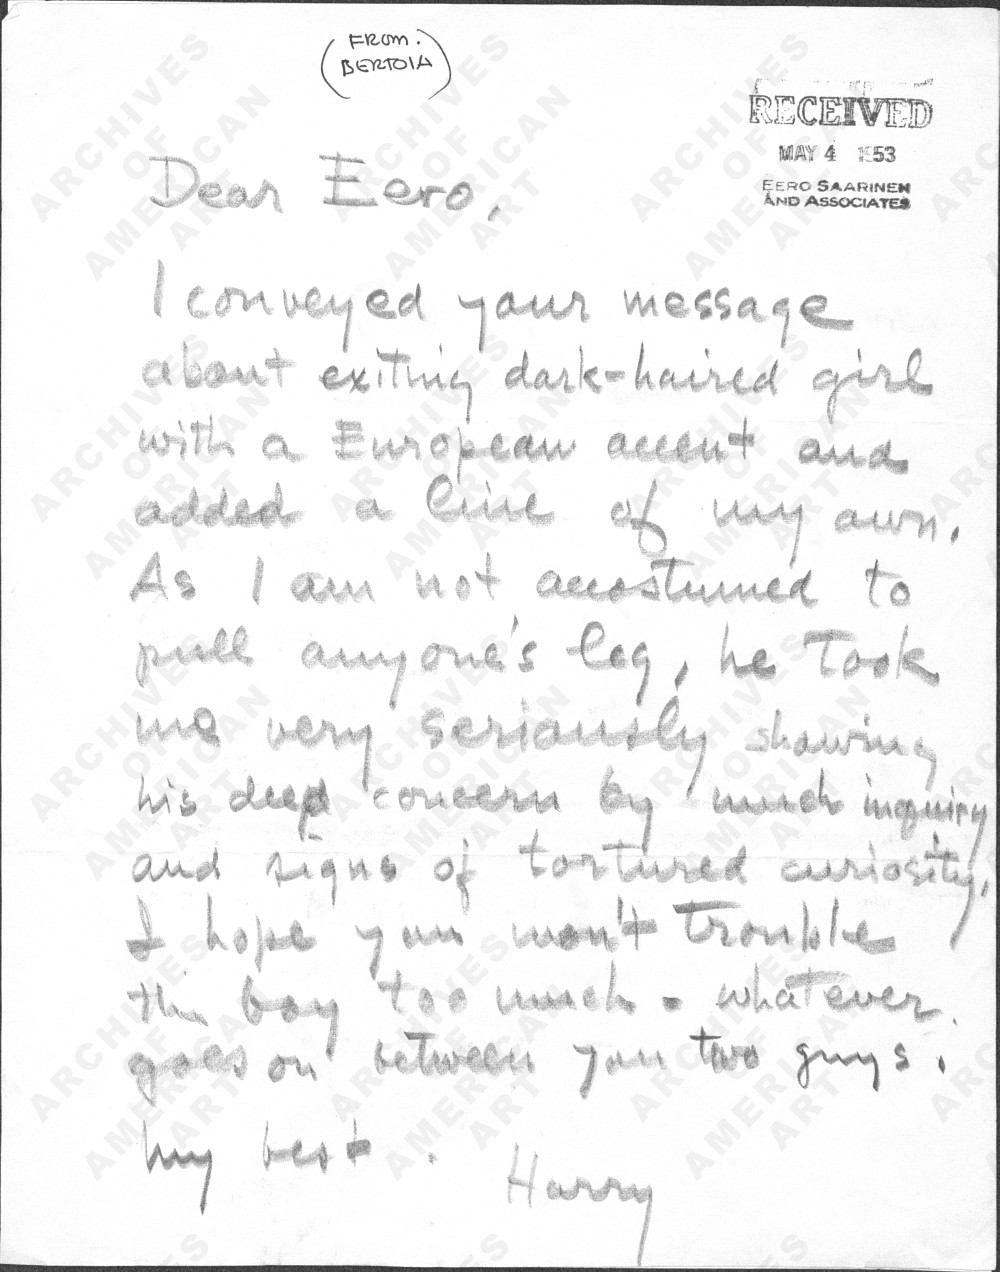 (FROM.
BERTOIA)
RECEIVED
MAY 4 1953
EERO SAARINEN
AND ASSOCIATES
Dear Eero,
I conveyed your message
about exiting dark-haired girl
with a European accent and
added a line of my own.
As I am not accostumed to
pull anyone's leg, he took
me very seriously showing
his deep concern by much inquiry
and signs of tortured curiosity,
I hope you won't trouble
this boy too much - whatever
goes on between you two guys.
My best.
Harry
ARCHIVES
OF
AMERICAN
ART